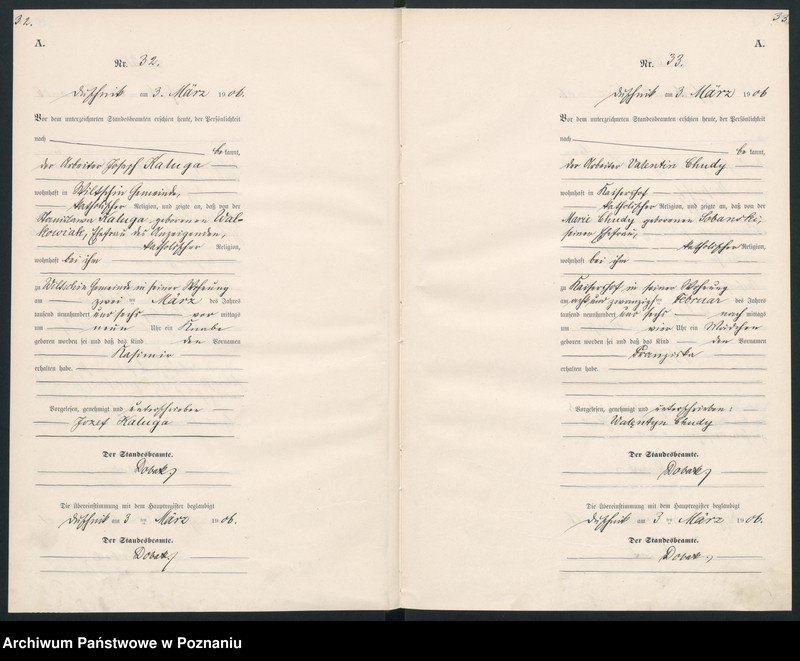 32.
A.
Nr. 32.
Duschnik am 3. März 1906.
Vor dem unterzeichneten Standesbeamten erschien heute, der Persönlichkeit
nach
bekannt,
der Arbeiter Joseph Kaluga
wohnhaft in Wiltschin Gemeinde,
katholischer Religion, und zeigte an, daß von der
Stanislawa Kaluga geborenen Wal-
kowiak, Ehefrau des Anzeigenden,
katholischer Religion,
wohnhaft bei ihm
zu Wiltschin Gemeinde in seiner Wohnung
am zwei ten März des Jahres
tausend neunhundert und sechs vor mittags
um neun Uhr ein Knabe
geboren worden sei und daß das Kind den Vornamen
Kasimir
erhalten habe.
Vorgelesen, genehmigt und unterschrieben
Jozef Kaluga
Der Standesbeamte.
Die Übereinstimmung mit dem Hauptregister beglaubigt
Duschnik am 3 ten März 1906.
Der Standesbeamte.
33.
A.
Nr. 33.
Duschnik am 3. März 1906
Vor dem unterzeichneten Standesbeamten erschien heute, der Persönlichkeit
nach
bekannt,
der Arbeiter Valentin Chudy
wohnhaft in Kaisershof
katholischer Religion, und zeigte an, daß von der
Marie Chudy geborenen Lobanski,
seiner Ehefrau,
katholischer Religion,
wohnhaft bei ihm
zu Kaisershof in seiner Wohnung
am acht und zwanzig ten Februar des Jahres
tausend neunhundert und sechs nach mittags
um vier Uhr ein Mädchen
geboren worden sei und daß das Kind den Vornamen
Franziska
erhalten habe.
Vorgelesen, genehmigt und unterschrieben:
Walentyn Chudy
Der Standesbeamte.
Die Übereinstimmung mit dem Hauptregister beglaubigt
Duschnik am 3 ten März 1906.
Der Standesbeamte.
Archiwum Państwowe w Poznaniu